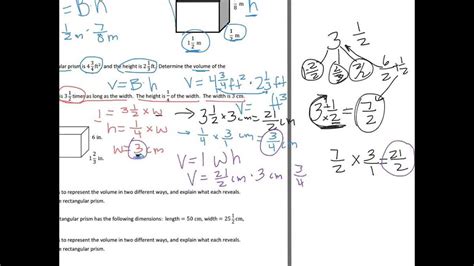 V = Bh
1 1/2 m
7/8 m
h
1/2 m · 7/8 m
rectangular prism is 4 3/4 ft² and the height is 2 1/3 ft. Determine the volume of the
V = B h
V = 4 3/4 ft² · 2 1/3 ft
V = ft³
is 3 1/2 times as long as the width. The height is 1/4 of the width. The width is 3 cm.
l = 3 1/2 × w → 3 1/2 × 3 cm = 21/2 cm
h = 1/4 × w → 1/4 × 3/1 cm = 3/4 cm
w = 3 cm
6 in.
1 2/3 in.
V = l w h
V = 21/2 cm · 3 cm · 3/4
s to represent the volume in two different ways, and explain what each reveals.
e rectangular prism.
ctangular prism has the following dimensions: length = 50 cm, width = 25 1/2 cm,
s to represent the volume in two different ways, and explain what each reveals.
e rectangular prism.
3 1/2
2/2 2/2 2/2
6/2 + 1/2
3 1/2 = 7/2
7/2 × 3/1 = 21/2